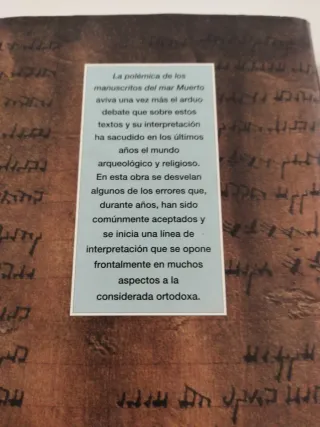 La polémica de los
manuscritos del mar Muerto
aviva una vez más el arduo
debate que sobre estos
textos y su interpretación
ha sacudido en los últimos
años el mundo
arqueológico y religioso.
En esta obra se desvelan
algunos de los errores que,
durante años, han sido
comúnmente aceptados y
se inicia una línea de
interpretación que se opone
frontalmente en muchos
aspectos a la
considerada ortodoxa.